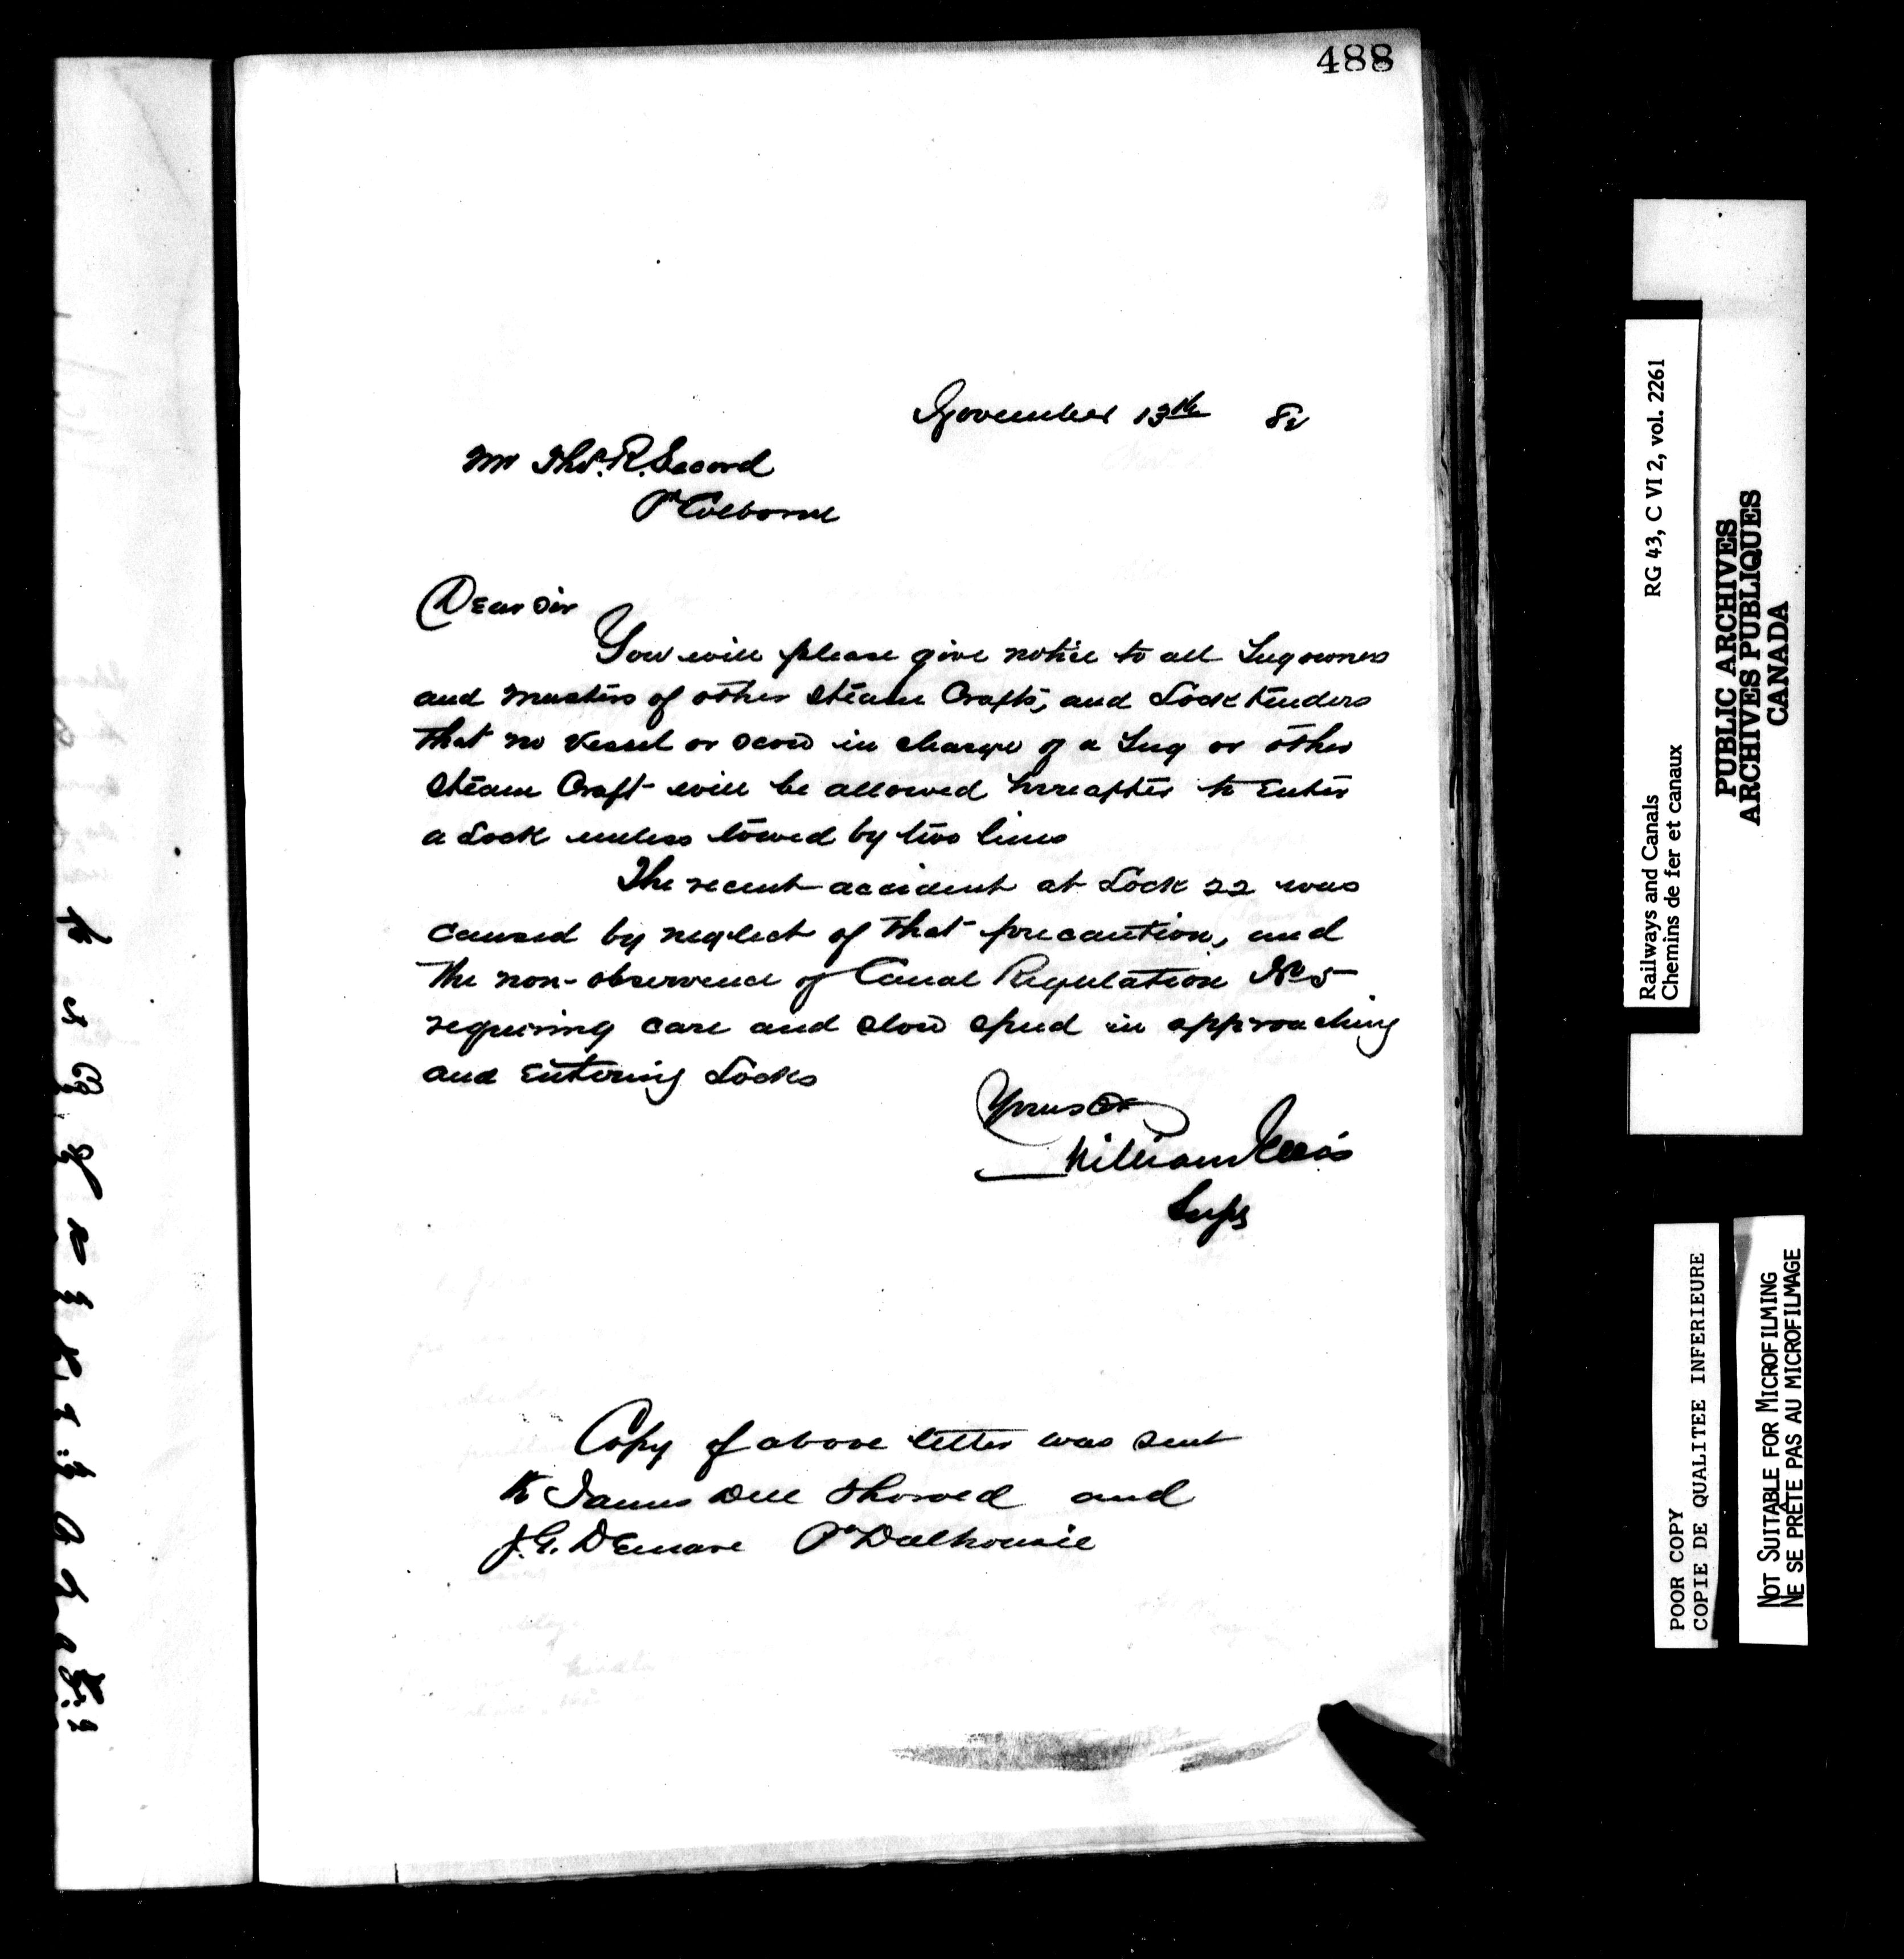 488
November 13th 82
Mr Thos. R. Secord
Pt Colborne
Dear Sir
You will please give notice to all Tug owners
and Masters of other Steam Crafts, and Lock tenders
that no Vessel or Scow in charge of a Tug or other
Steam Craft will be allowed hereafter to Enter
a Lock unless towed by two lines
The recent accident at Lock 22 was
caused by neglect of that precaution, and
the non-observence of Canal Regulation No 5
requiring care and slow speed in approaching
and Entering Locks
Yours &c
William Ellis
Supt
Copy of above letter was sent
to James Dell Thorold and
J. G. Demare Pt Dalhousie
Railways and Canals RG 43, C VI 2, vol. 2261
Chemins de fer et canaux
PUBLIC ARCHIVES
ARCHIVES PUBLIQUES
CANADA
POOR COPY
COPIE DE QUALITEE INFERIEURE
NOT SUITABLE FOR MICROFILMING
NE SE PRÊTE PAS AU MICROFILMAGE